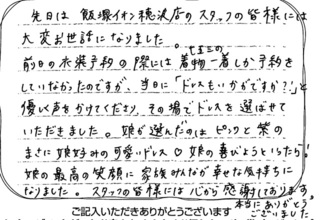 先日は飯塚イオン穂波店のスタッフの皆様には
大変お世話になりました。
前日の衣装予約の際には七五三の着物一着しか予約を
していなかったのですが、当日に「ドレスもいかがですか?」と
優しく声をかけてくださり、その場でドレスを選ばせて
いただきました。娘が選んだのはピンクと紫の
まさに娘好みの可愛いドレス♡娘の喜びようといったら!
娘の最高の笑顔に家族みんなが幸せな気持ちに
なりました。スタッフの皆様には心から感謝しております。
本当にありがとうございました。
ご記入いただきありがとうございます